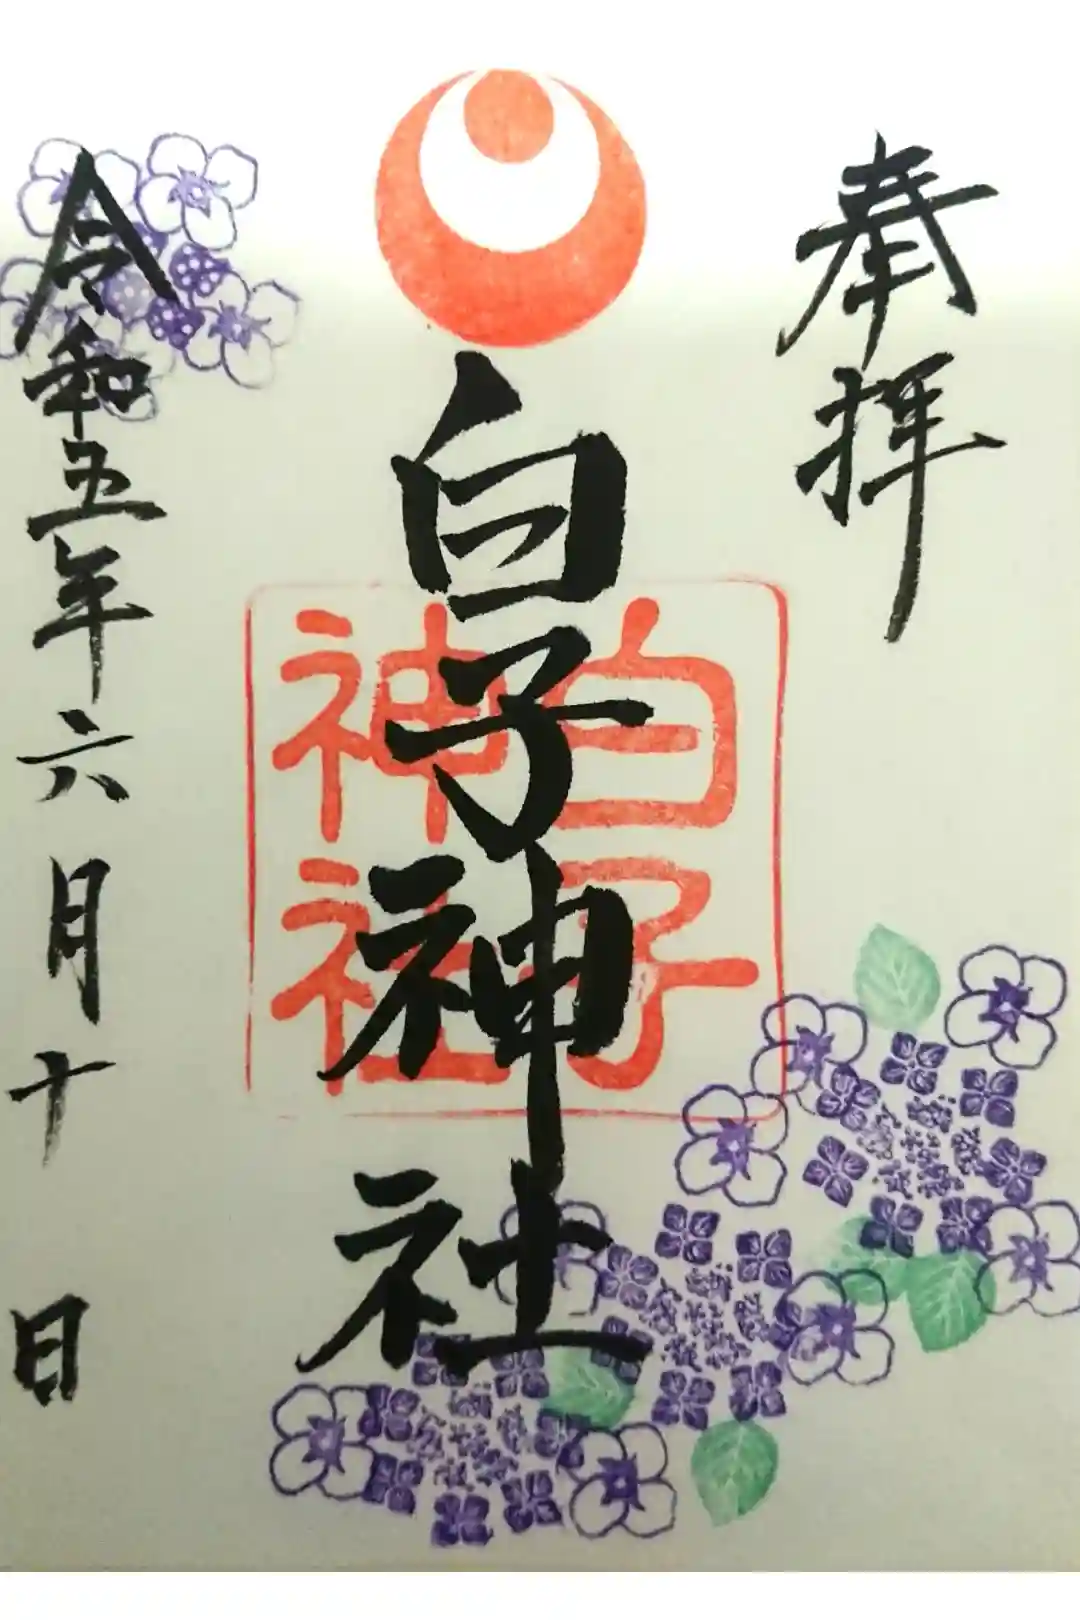 奉拝
白子神社
白子
神社
令和五年六月十日